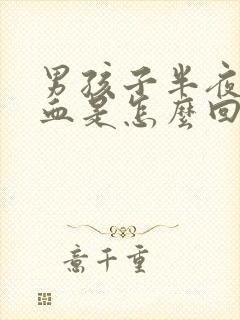 男孩子半夜
血是怎麼回
意千重